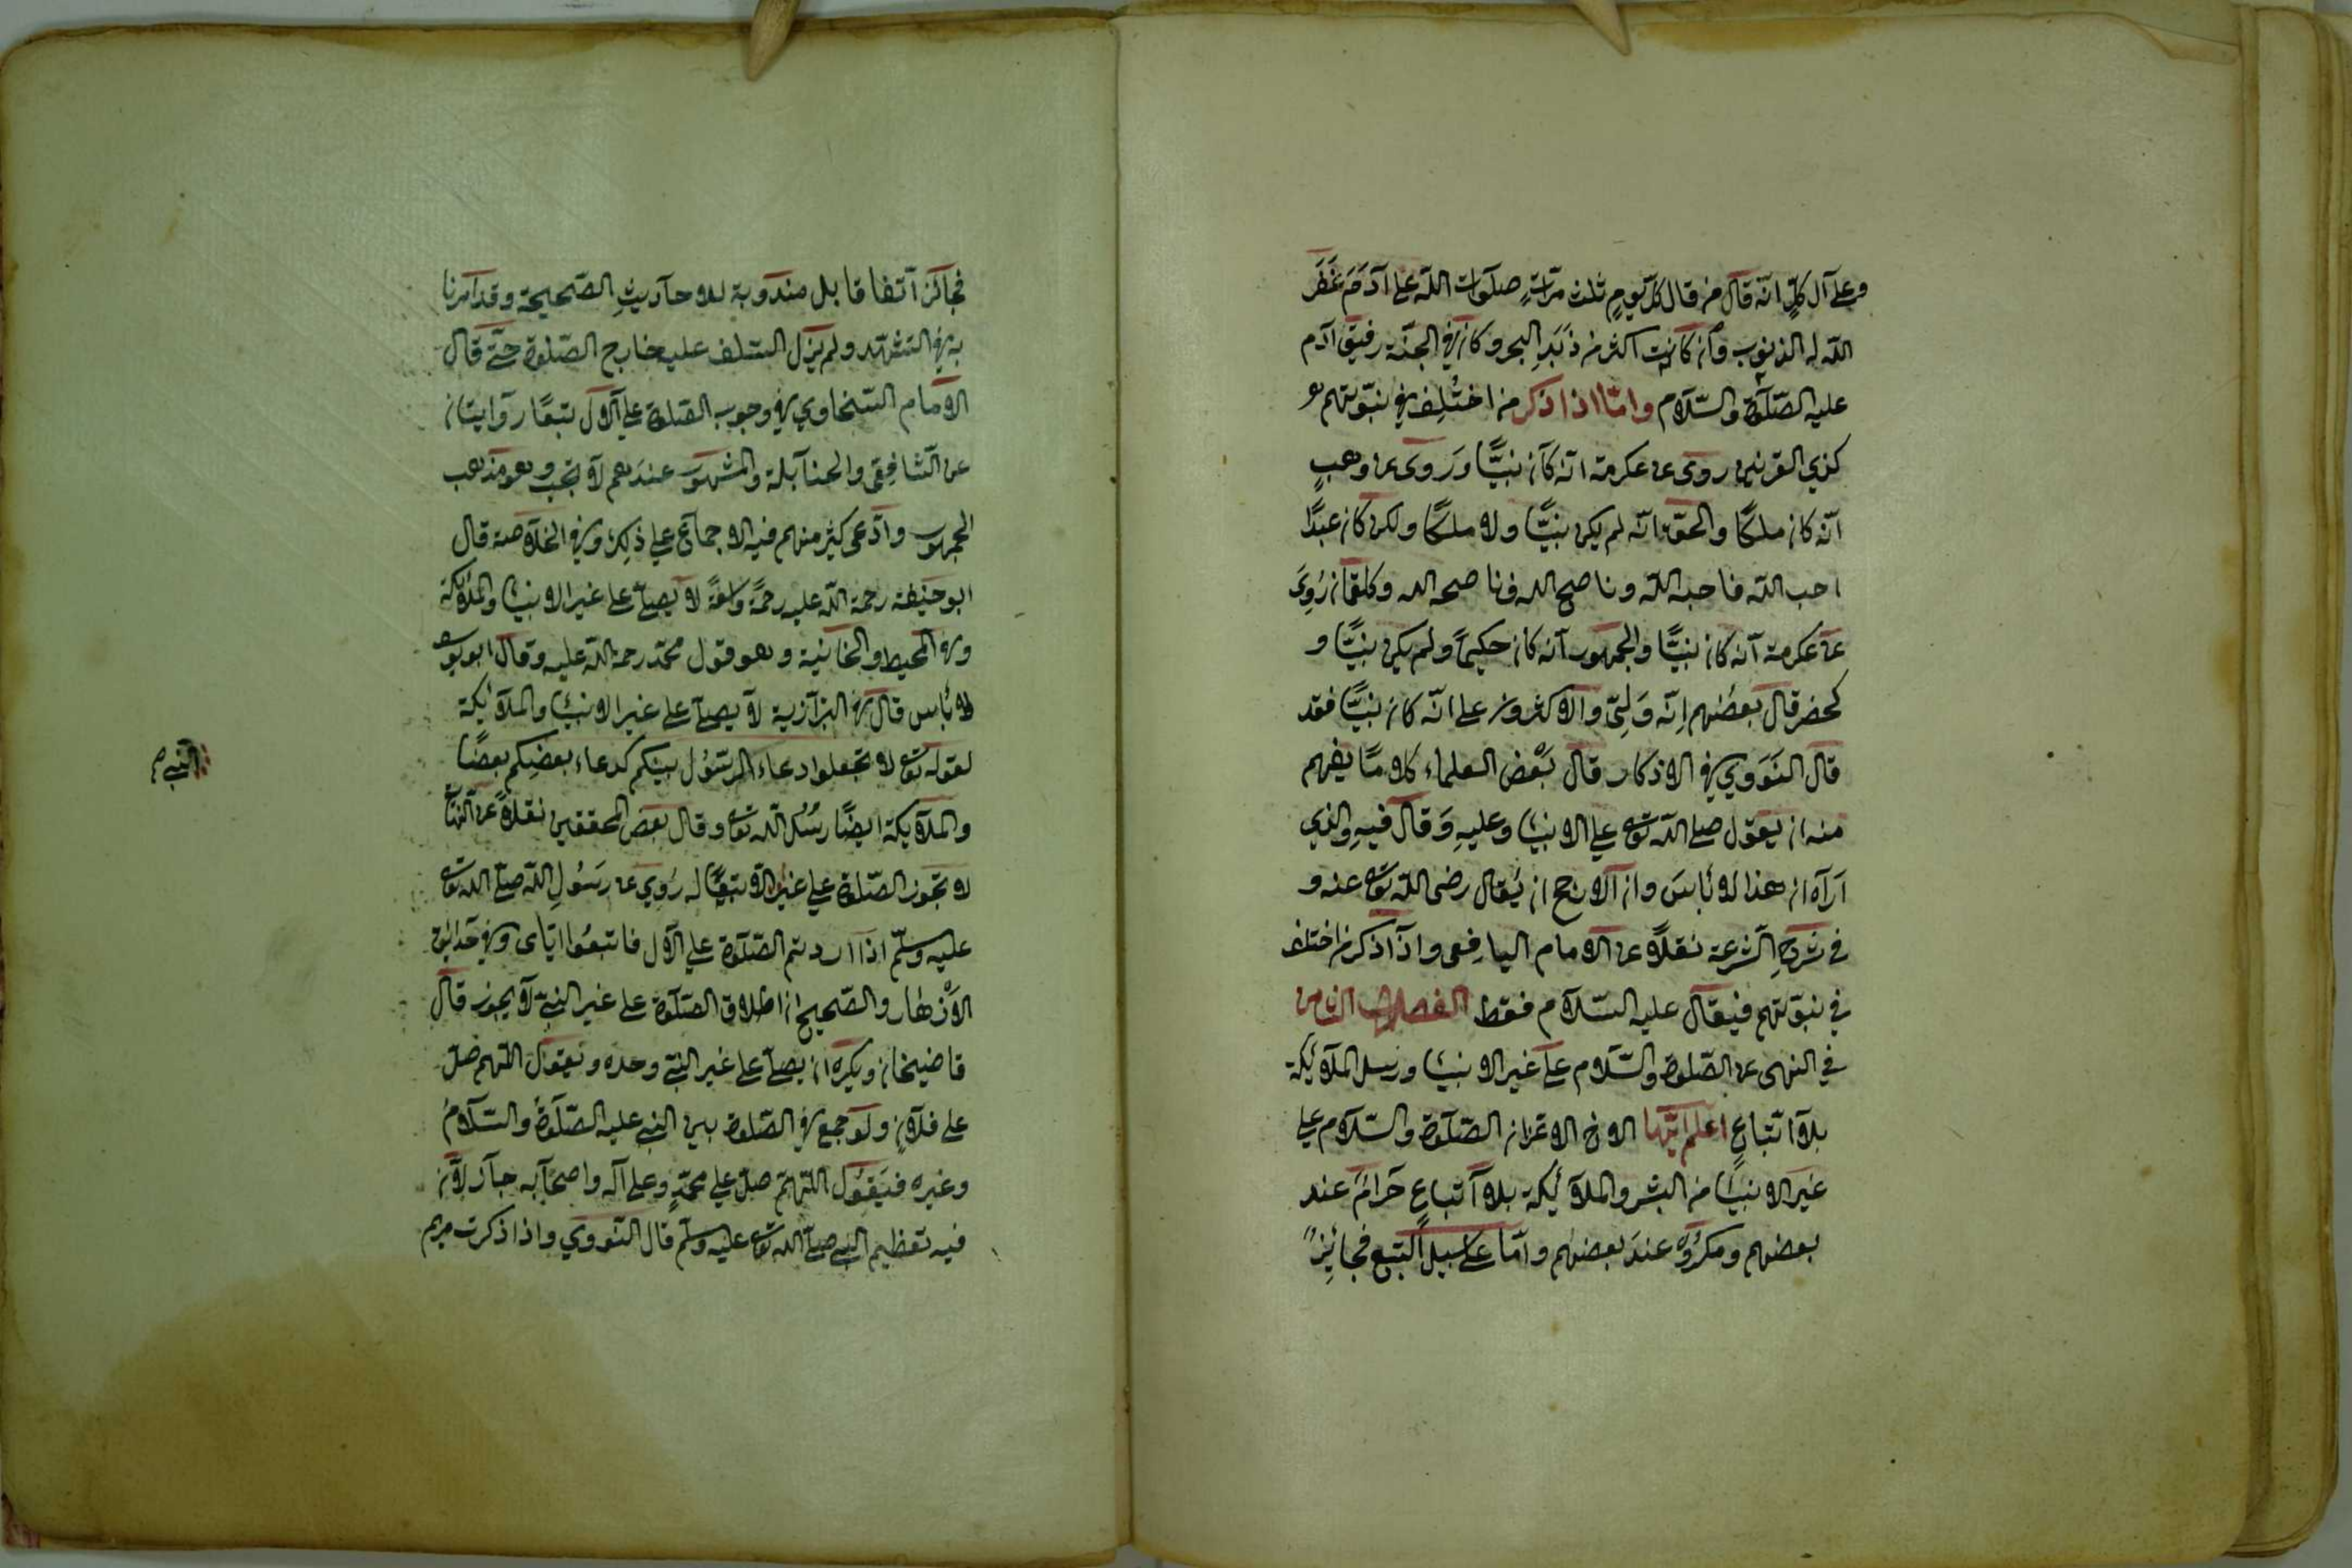 وعلى آل كلٍّ انّه قال من قال كلّ يومٍ ثلث مرّاتٍ صلوات اللّه على آدم غَفَرَ
اللّه له الذنوب وان كانت اكثر من زَبَدِ البحر وكان في الجنّة رفيق آدم
عليه الصّلوة والسّلام وامّا اذا ذكر من اختُلِف في نبوّتهم
كذي القرنين روى عن عكرمة انّه كان نبيًّا ورَوى عن وهبٍ
انّه كان ملكًا والحقّ انّه لم يكن نبيًّا ولا ملكًا ولكن كان عبدًا
احب اللّه فاحبه اللّه وناصح اللّه فناصحه اللّه وكلقمان رُوِيَ
عن عكرمة انّه كان نبيًّا والجمهور انّه كان حكيمًا ولم يكن نبيًّا و
كخضر قال بعضُهم اِنّه وَليّ والاكثرون على انّه كان نبيًّا فقد
قال النَوَوي في الاذكار قال بَعْض العلماء كلامًا يفهم
منه ان يقول صلى اللّه تعالى على الانبياء وعليه وَقال فيهِ والذي
اَرَاه ان هذا لا بَاْسَ وان الارجح ان يُقال رضى اللّه تعالى عنه و
في شرح الشرعة نقلاً عن الامام اليافِعى واذا ذكر من اختلف
في نبوّتهم فيقال عليه السّلام فقط الفصل الثامن
في النهى عن الصّلوة والسّلام على غير الانبياء ورسل الملائكة
بلا اتّباعٍ اعلم ايّها الاخ الاعز ان الصّلوة والسّلام على
غير الانبياء من البشر والملائكة بلا اتباعٍ حَرامٌ عند
بعضهم ومكروه عندَ بعضهم وامّا على سبيل التبع فجائِزٌ
فجائز اتفاقا بل مندوبة للاحاديثِ الصّحيحة وقد امرنا
به في التشهّد ولم يزل السّلف عليه خارج الصّلوة حتّى قال
الامام السّخاوي في وجوب الصّلوة على الآل تبعًا روايتان
عن الشّافِعى والحنابلة والمشهور عندَهم لا تجب وهو مذهب
الجمهور وادّعى كثير منهم فيه الاجماع على ذلك وفي الخلاصة قال
ابو حنيفة رحمة اللّه عليه رحمةً واسعةً لا يصلّى على غير الانبياء والملائكة
وفي المحيط والخانية وهو قول محمّد رحمة اللّه عليه وقال ابو يوسف
لا بأس قال في البزّازية لا يصلّى على غير الانبياء والملائكة
لقوله تعالى لا تجعلوا دعاء الرّسُول بينكم كدعاء بعضِكم بعضًا
والملائكة ايضًا رسُل اللّه تعالى وقال بعض المحققين نقلاً عن
لا تجوز الصّلوة على غير الانبياء الا تبعًا له رُوي عن رسُولِ اللّه صلّى اللّه تعالى
عليه وسلّم اذا اردتم الصّلوة على الآل فاتبعُوا ايّاى وفي حَدائق
الاَزْهار والصّحيح ان اطلاق الصّلوة على غير النبيّ لا يجوز قال
قاضيخان ويكره ان يصلّى على غير النبيّ وحده ويقول اللّهم صلّ
على فلانٍ ولو جمع في الصّلوة بين النبي عليه الصّلوةُ والسّلامُ
وغيره فيَقُول اللّهمّ صلّ على محمّدٍ وعلى آله واصحابه جاز لانّ
فيه تعظيم النبي صلّى اللّه تعالى عليه وسلّم قال النّووي واذا ذكرت مريم
النبي